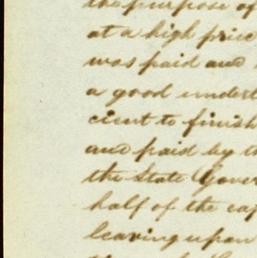 the purpose of
at a high price
was paid and
a good undert
cient to finish
and paid by t
the State Gover
half of the ca
leaving upon